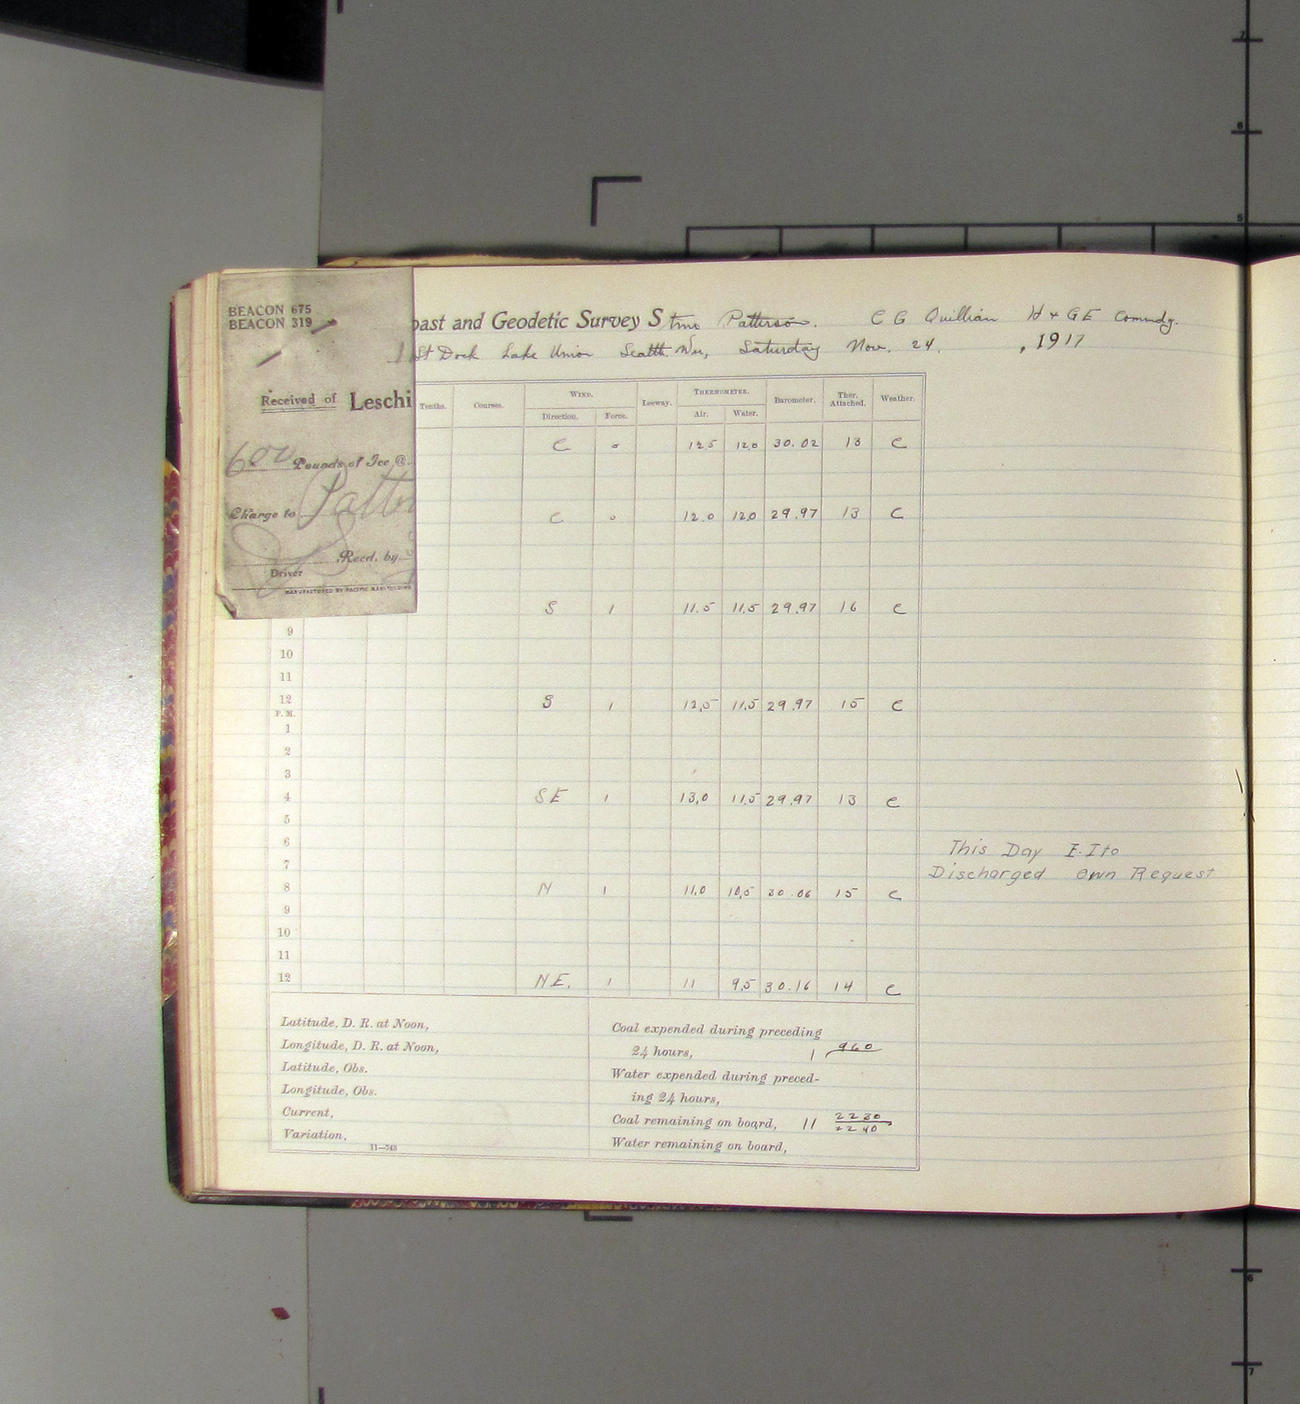 BEACON 675
BEACON 319
Received of Leschi
600 Pounds of Ice @
Charge to Patter
Recd. by
Driver
MANUFACTURED BY PACIFIC MANIFOLDING
oast and Geodetic Survey Stmr Patterson. C G Quillian H & GE Commdg.
St Dock Lake Union Seattle Wn, Saturday Nov. 24, , 1917
Tenths. Courses. WIND. Leeway. THERMOMETER. Barometer. Ther. Attached. Weather.
Direction. Force. Air. Water.
C 0 12.5 12.0 30.02 13 C
C 0 12.0 12.0 29.97 13 C
S 1 11.5 11.5 29.97 16 C
9
10
11
12 S 1 12.5 11.5 29.97 15 C
P. M.
1
2
3
4 SE 1 13.0 11.5 29.97 13 C
5
6 This Day E. Ito
7 Discharged own Request
8 N 1 11.0 10.5 30.06 15 C
9
10
11
12 NE. 1 11 9.5 30.16 14 C
Latitude, D. R. at Noon,
Longitude, D. R. at Noon,
Latitude, Obs.
Longitude, Obs.
Current,
Variation,
11—743
Coal expended during preceding
24 hours, 1 960
Water expended during preced-
ing 24 hours,
Coal remaining on board, 11 2230
2240
Water remaining on board,
7
6
5
6
7